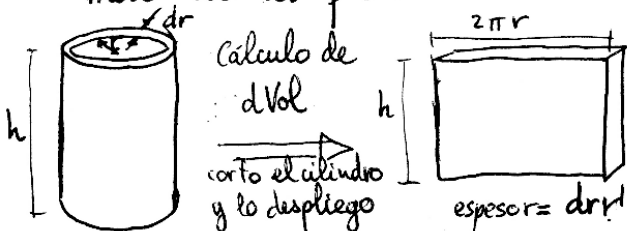 dr
h
Cálculo de
dVol
corto el cilindro
y lo despliego
2πr
h
espesor= dr